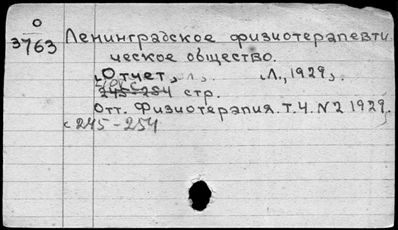 О
3763
Ленинградское физиотерапевти
ческое общество.
Отчет, Л., 1929,
245-254 стр.
Отт. Физиотерапия. Т.4. N2 1929.
<245-254